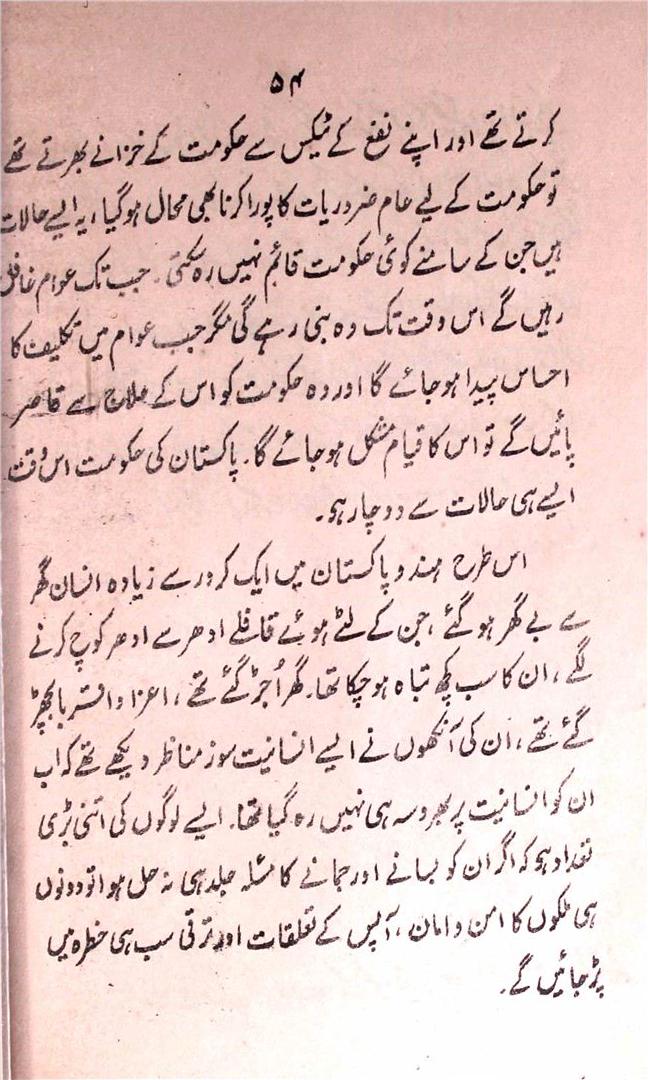 ۵۴
کرتے تھے اور اپنے نفع کے ٹیکس سے حکومت کے خزانے بھرتے تھے
تو حکومت کے لیے عام ضروریات کا پورا کرنا بھی محال ہوگیا، یہ ایسے حالات
ہیں جن کے سامنے کوئی حکومت قائم نہیں رہ سکتی۔ جب تک عوام غافل
رہیں گے اس وقت تک وہ بنی رہے گی مگر جب عوام میں تکلیف کا
احساس پیدا ہو جائے گا اور وہ حکومت کو اس کے علاج سے قاصر
پائیں گے تو اس کا قیام مشکل ہو جائے گا۔ پاکستان کی حکومت اس وقت
ایسے ہی حالات سے دوچار ہی۔
اس طرح ہند و پاکستان میں ایک کرور سے زیادہ انسان گھر
سے بے گھر ہو گئے، جن کے لٹے ہوئے قافلے ادھر سے ادھر کوچ کرنے
لگے، ان کا سب کچھ تباہ ہو چکا تھا۔ گھر اُجڑ گئے تھے، اعزا و اقربا بچھڑ
گئے تھے، ان کی آنکھوں نے ایسے انسانیت سوز مناظر دیکھے تھے کہ اب
ان کو انسانیت پر بھروسہ ہی نہیں رہ گیا تھا۔ ایسے لوگوں کی اتنی بڑی
تعداد ہی کہ اگر ان کو بسانے اور جمانے کا مسئلہ جلد ہی نہ حل ہوا تو دونوں
ہی ملکوں کا امن و امان، آپس کے تعلقات اور ترقی سب ہی خطرہ میں
پڑ جائیں گے۔